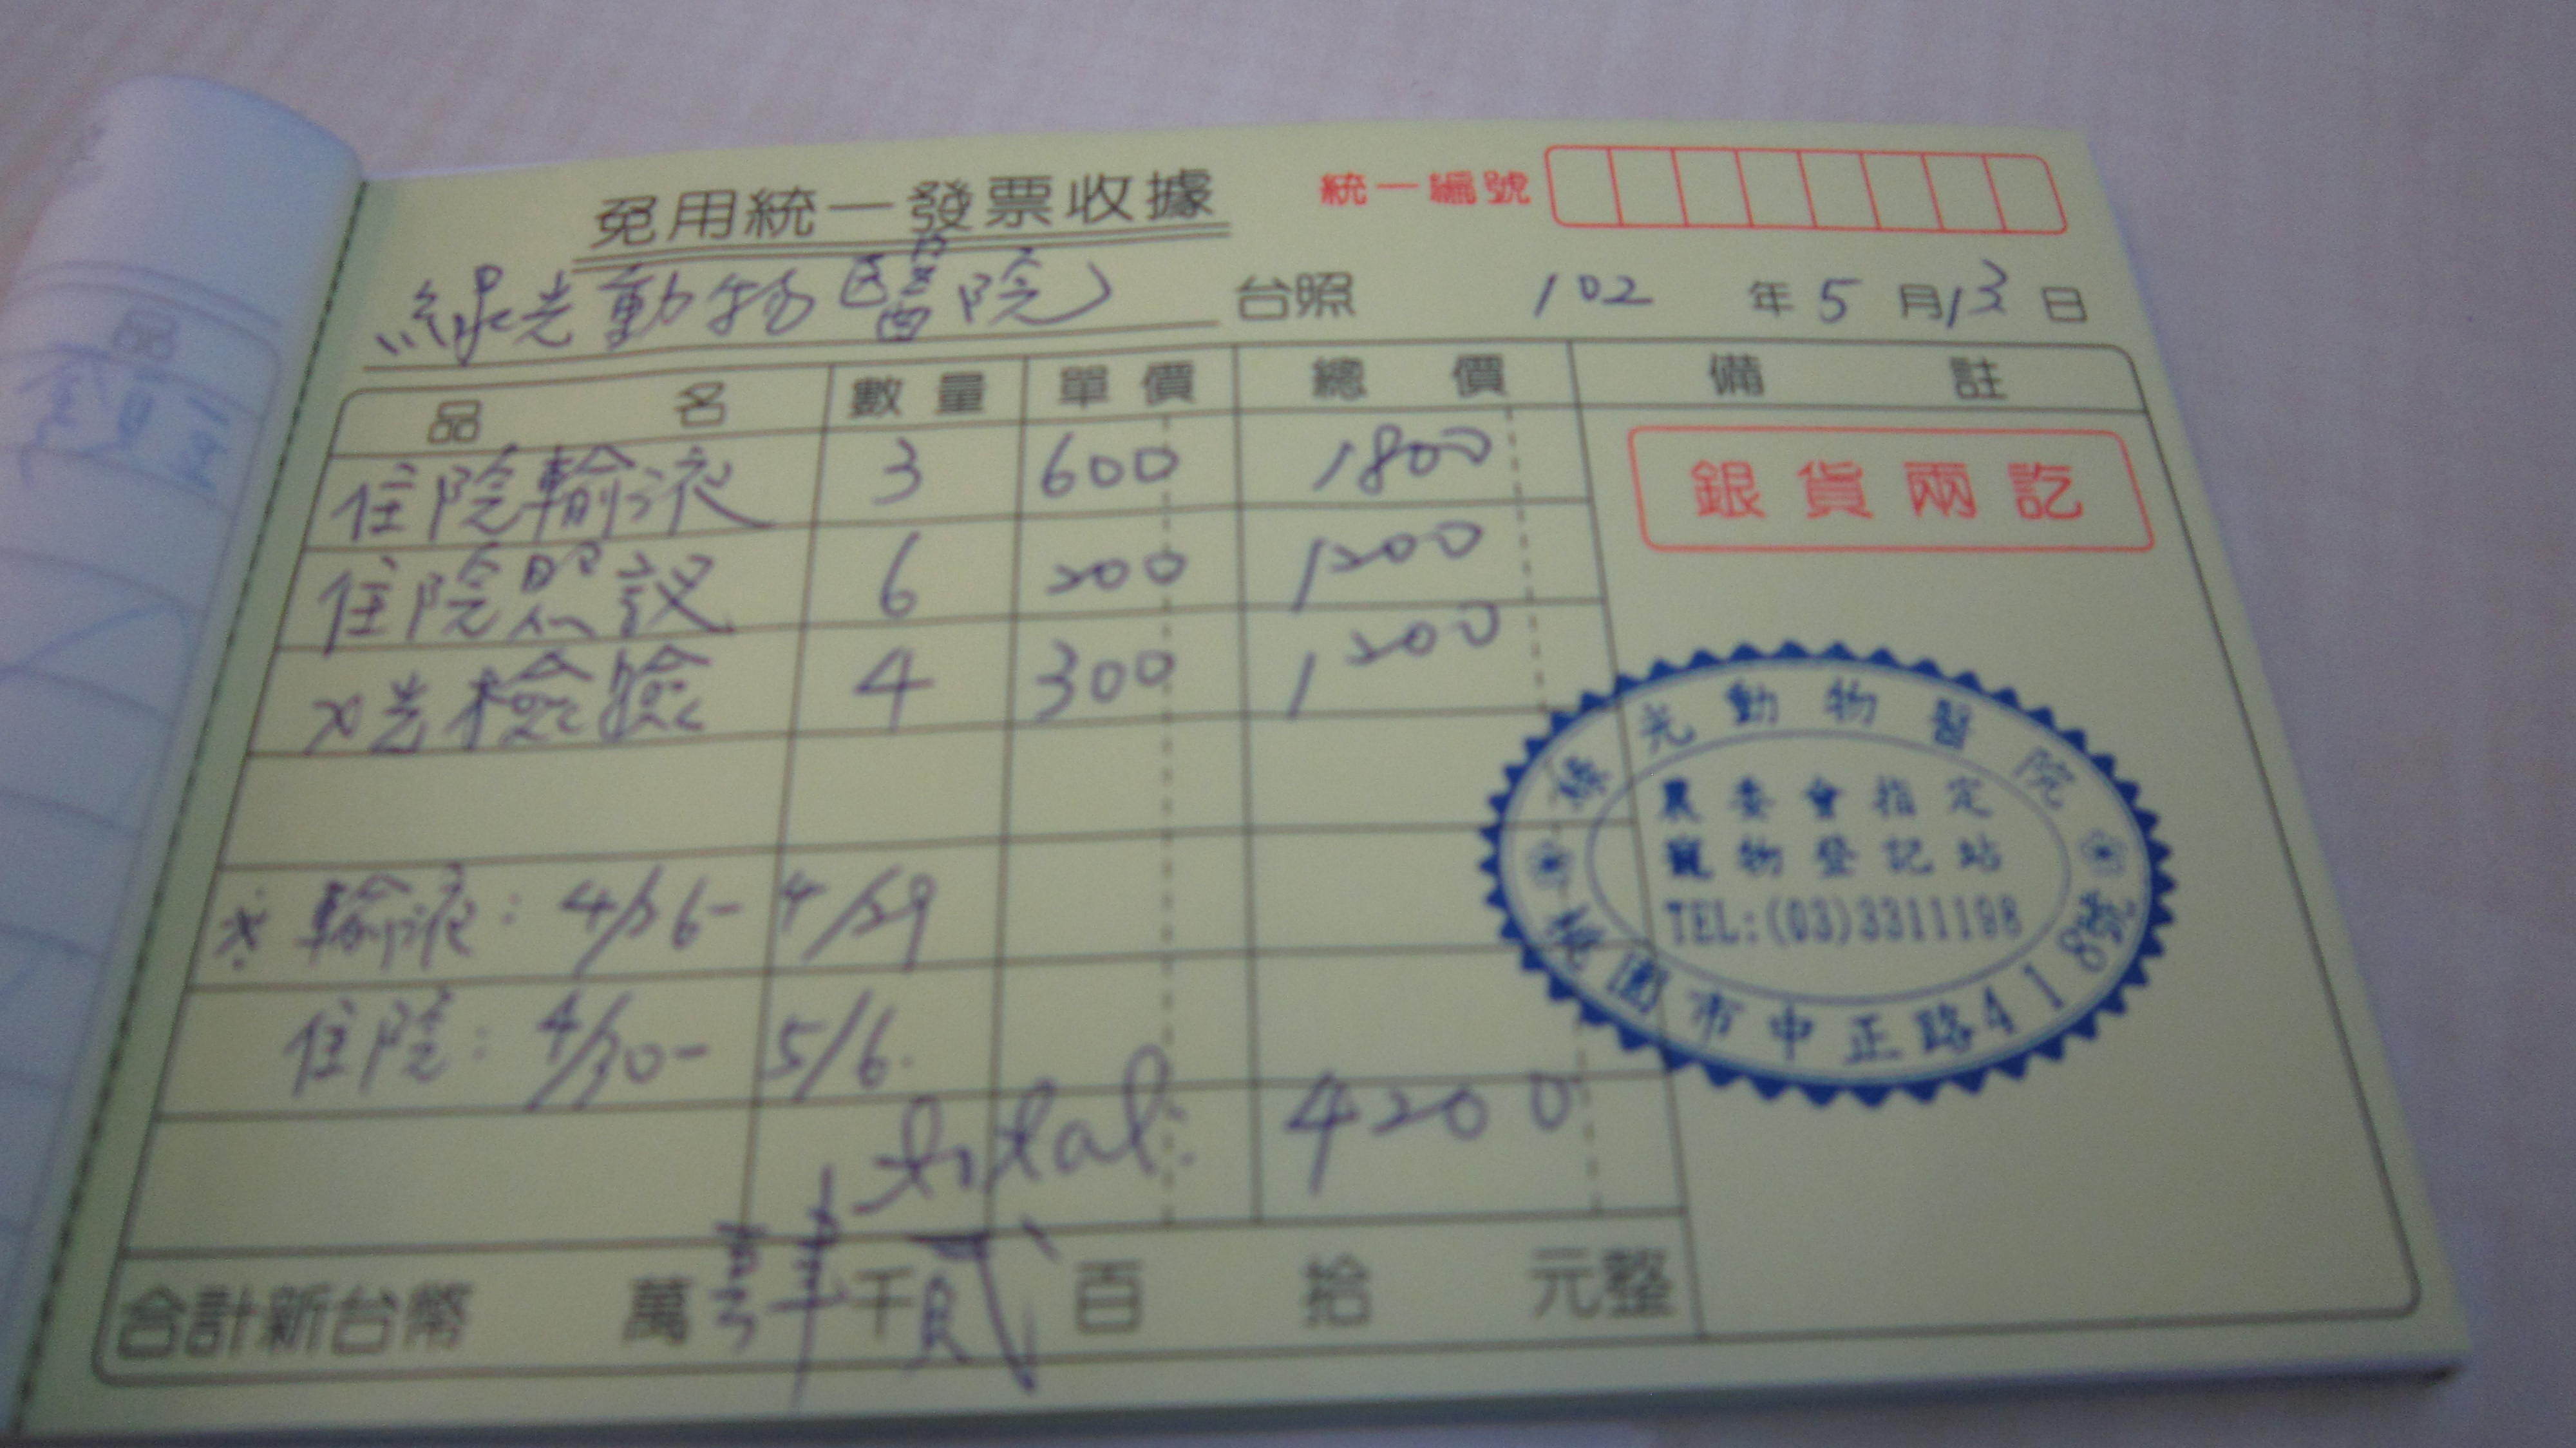 免用統一發票收據
統一編號
綠光動物醫院 台照 102 年 5 月 13 日
品 名 數量 單價 總 價 備 註
住院輸液 3 600 1800
住院照護 6 200 1200
X光檢驗 4 300 1200
銀貨兩訖
※輸液: 4/26- 4/29
住院: 4/30- 5/6.
total: 4200
合計新台幣 萬 肆 千 貳 百 拾 元整
綠光動物醫院
農委會指定
寵物登記站
TEL:(03)3311198
桃園市中正路418號
品